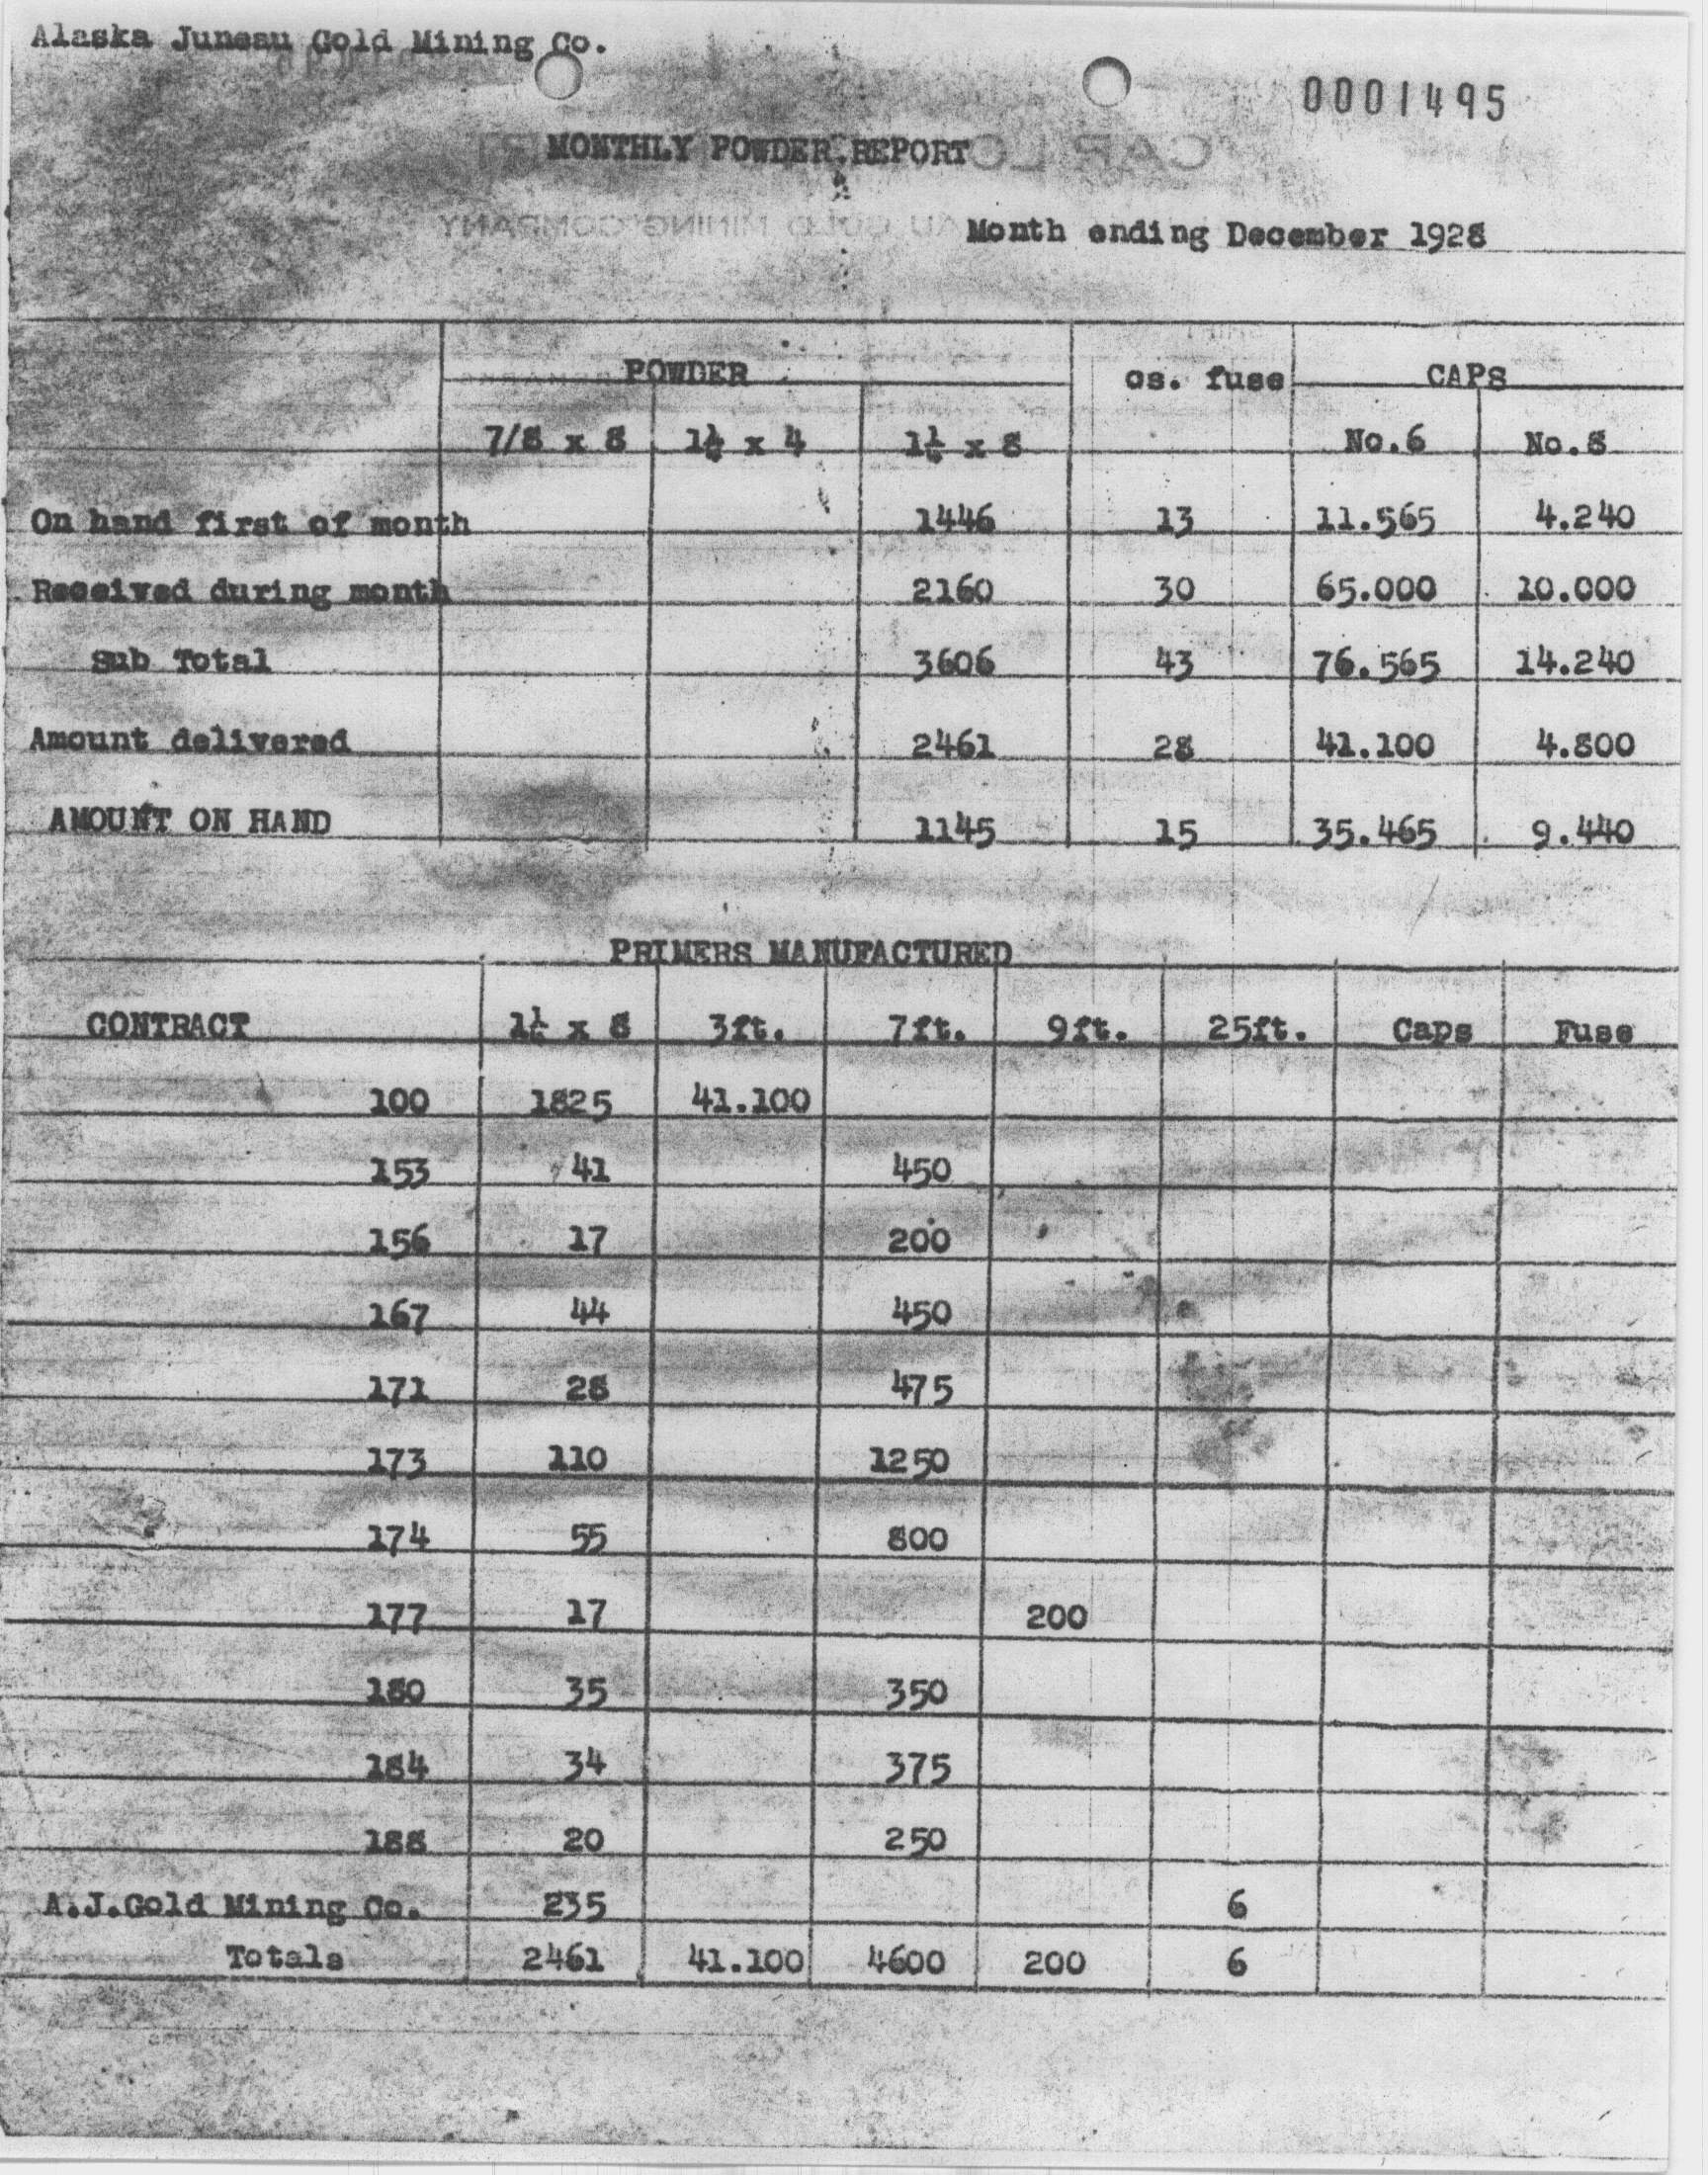 Alaska Juneau Gold Mining Co.
0001495
MONTHLY POWDER REPORT
Month ending December 1928
POWDER cs. fuse CAPS
7/8 x 8 1¼ x 4 1¼ x 8 No.6 No.8
On hand first of month 1446 13 11.565 4.240
Received during month 2160 30 65.000 10.000
Sub Total 3606 43 76.565 14.240
Amount delivered 2461 28 41.100 4.800
AMOUNT ON HAND 1145 15 35.465 9.440
PRIMERS MANUFACTURED
CONTRACT 1¼ x 8 3ft. 7ft. 9ft. 25ft. Caps Fuse
100 1825 41.100
153 41 450
156 17 200
167 44 450
171 28 475
173 110 1250
174 55 800
177 17 200
180 35 350
184 34 375
188 20 250
A.J.Gold Mining Co. 235 6
Totals 2461 41.100 4600 200 6